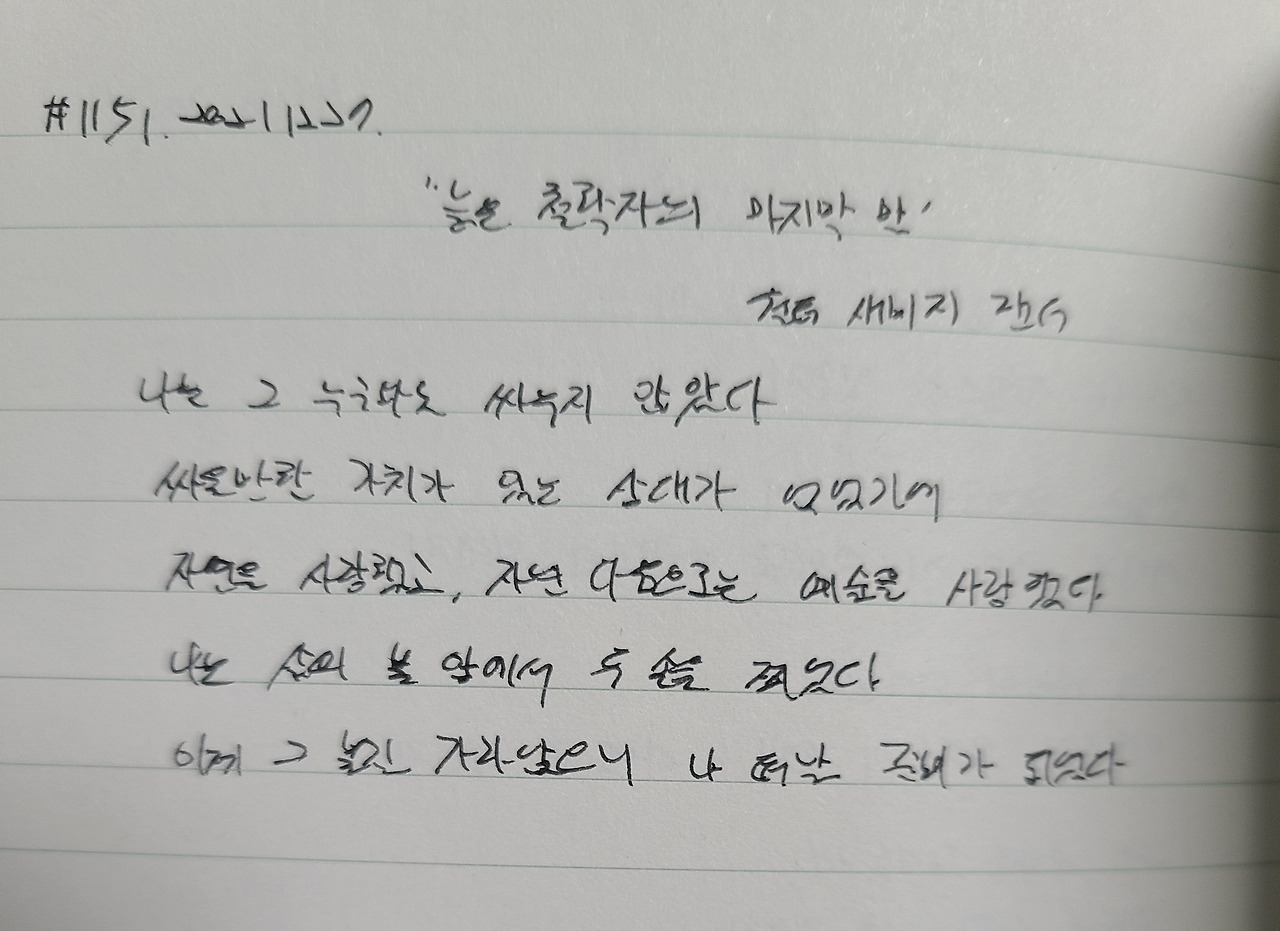 #1151. 20211227.
"늙은 철학자의 마지막 말"
새비지 랜더
나는 그 누구와도 싸우지 않았다
싸울만한 가치가 있는 상대가 없었기에
자연을 사랑했고, 자연 다음으로는 예술을 사랑했다
나는 삶의 불 앞에서 두 손을 쬐었다
이제 그 불길 가라앉으니 나 떠날 준비가 되었다